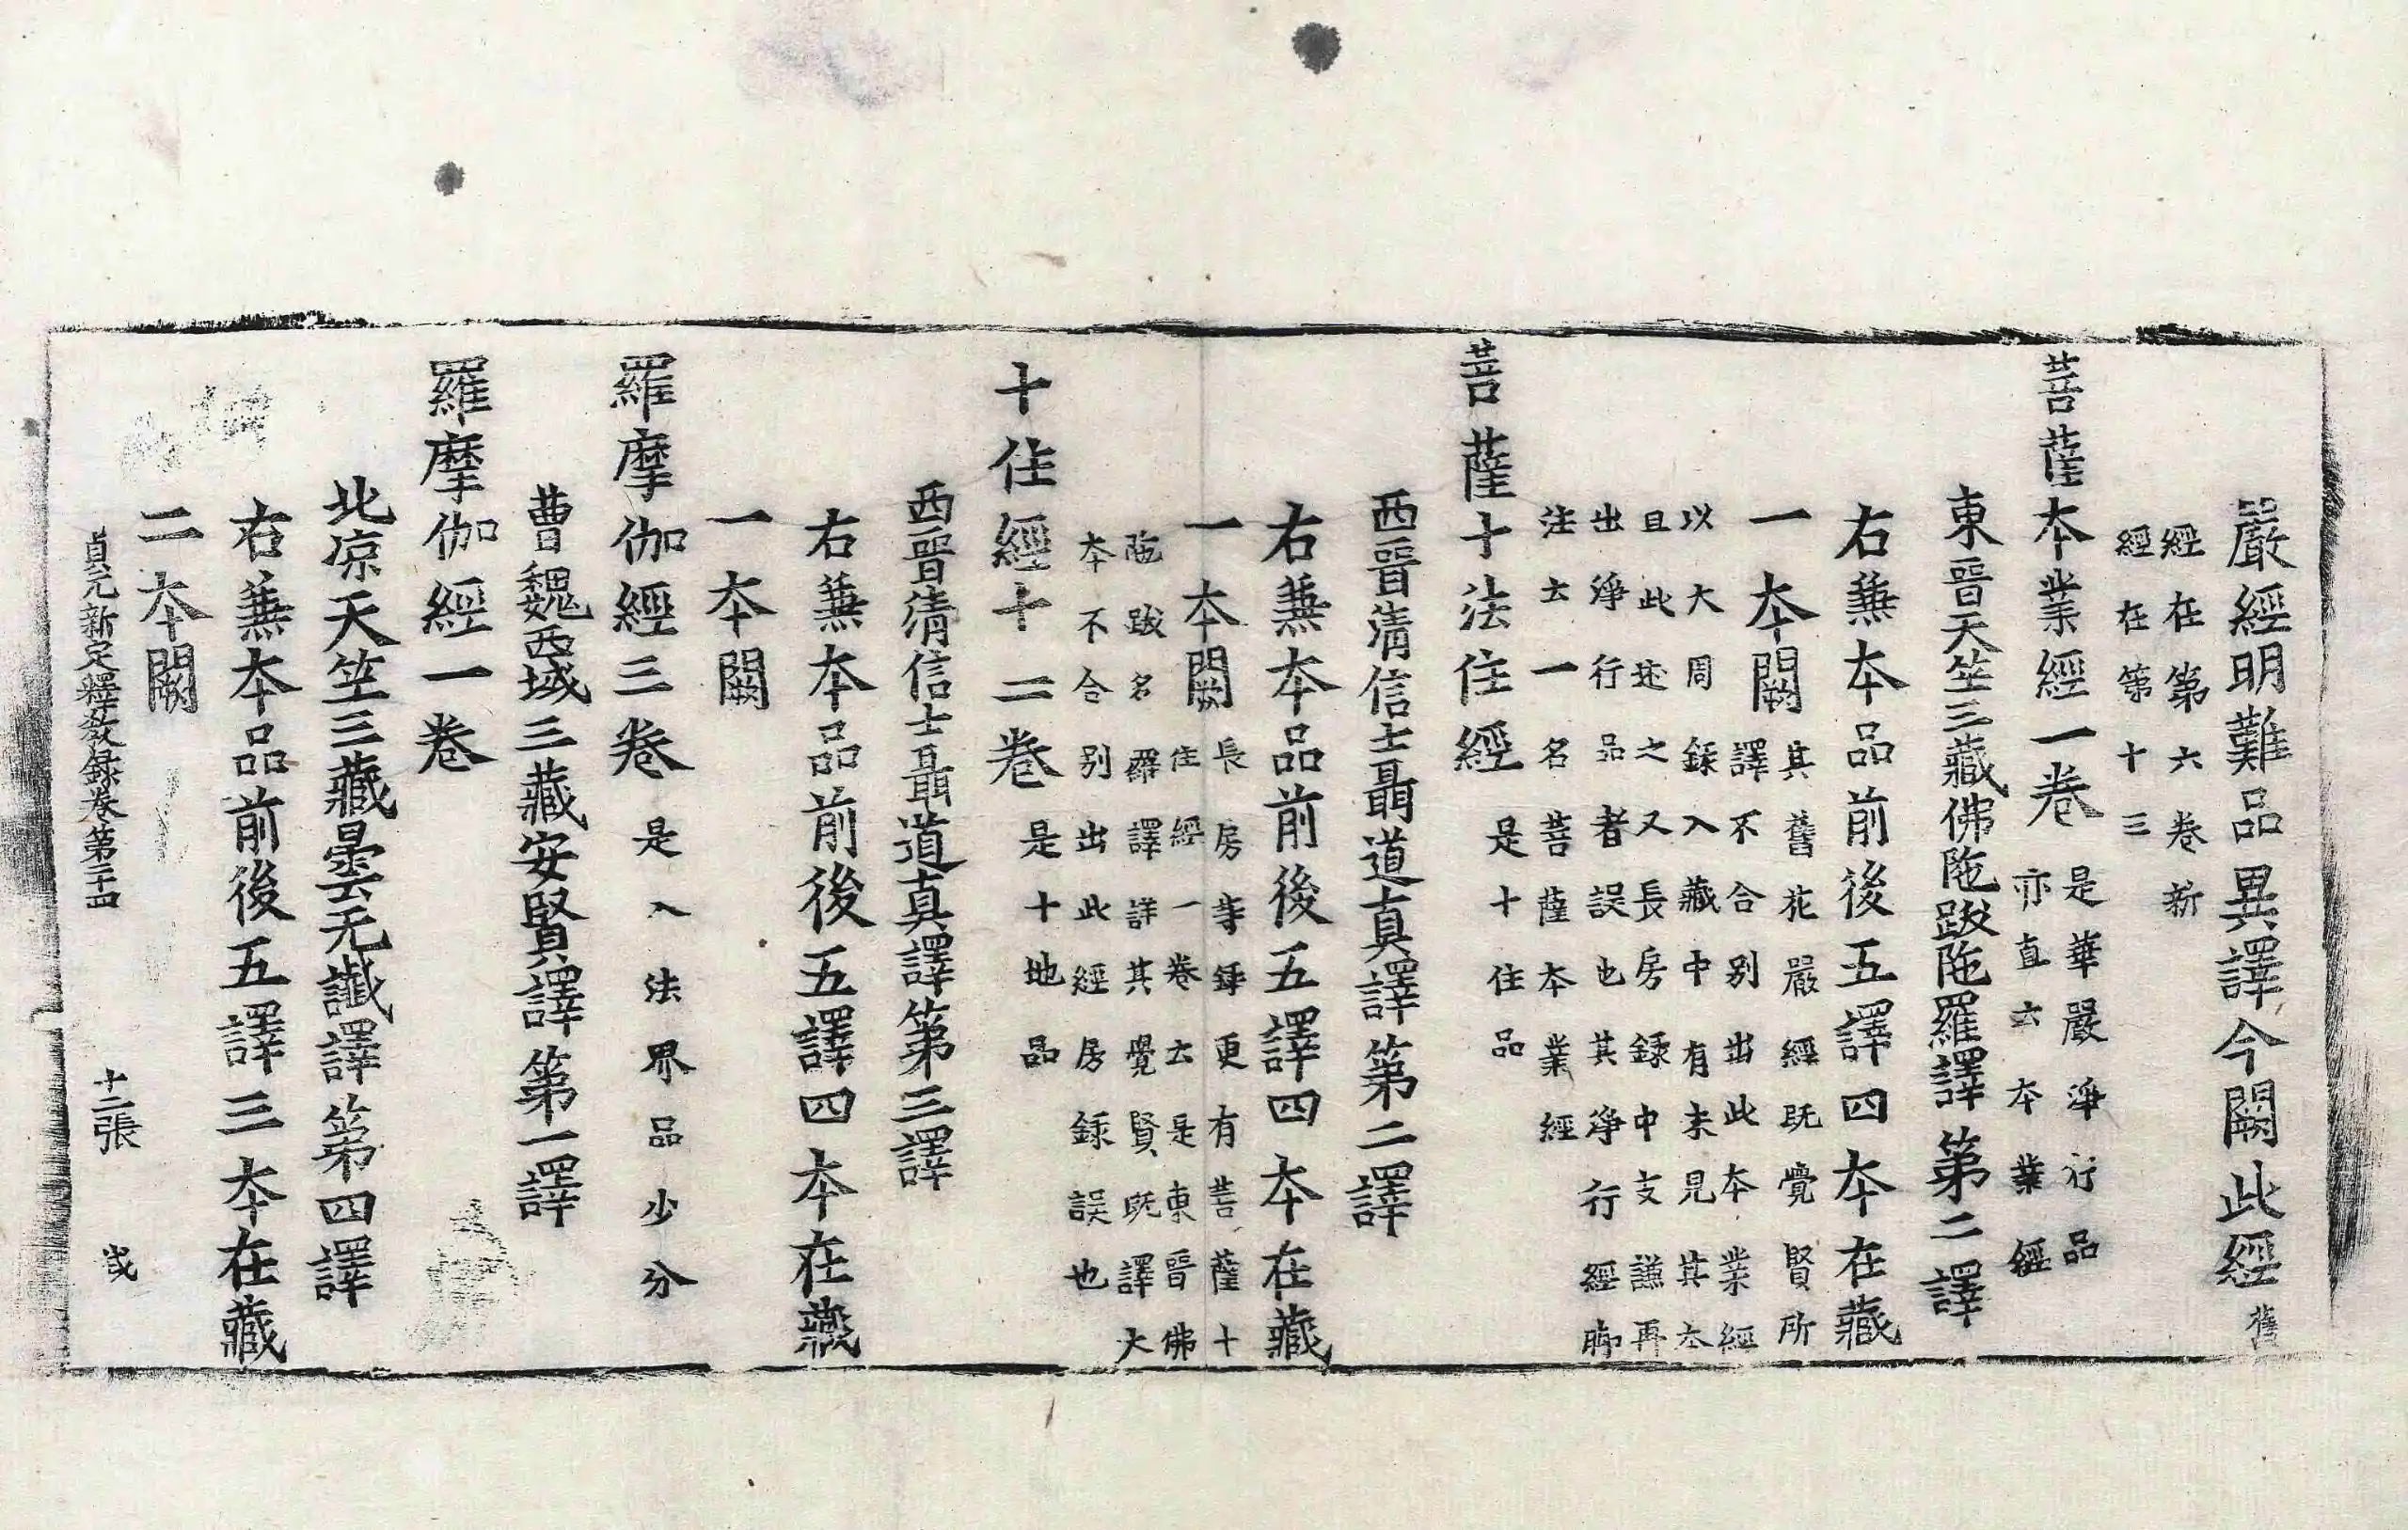 嚴經明難品異譯今闕此經舊
經在第六卷新
經在第十三
菩薩本業經一卷是華嚴淨行品
亦直云本業經
東晉天竺三藏佛陁跋陁羅譯第二譯
右蕪本品前後五譯四本在藏
一本闕其舊花嚴經旣覺賢所
譯不合別出此本業經
以大周錄入藏中有未見其本
且此述之又長房錄中支謙再
出淨行品者誤也其淨行經即
注云一名菩薩本業經
菩薩十法住經是十住品
西晉清信士聶道真譯第二譯
右蕪本品前後五譯四本在藏
一本闕長房等錄更有菩薩十
住經一卷云是東晉佛
陁跋名羅譯詳其覺賢旣譯大
本不合別出此經房錄誤也
十住經十二卷是十地品
西晉清信士聶道真譯第三譯
右蕪本品前後五譯四本在藏
一本闕
羅摩伽經三卷是入法界品少分
曹魏西域三藏安賢譯第一譯
羅摩伽經一卷
北凉天竺三藏曇无讖譯第四譯
右蕪本品前後五譯三本在藏
二本闕
貞元新定釋教録卷第二十四 十二張